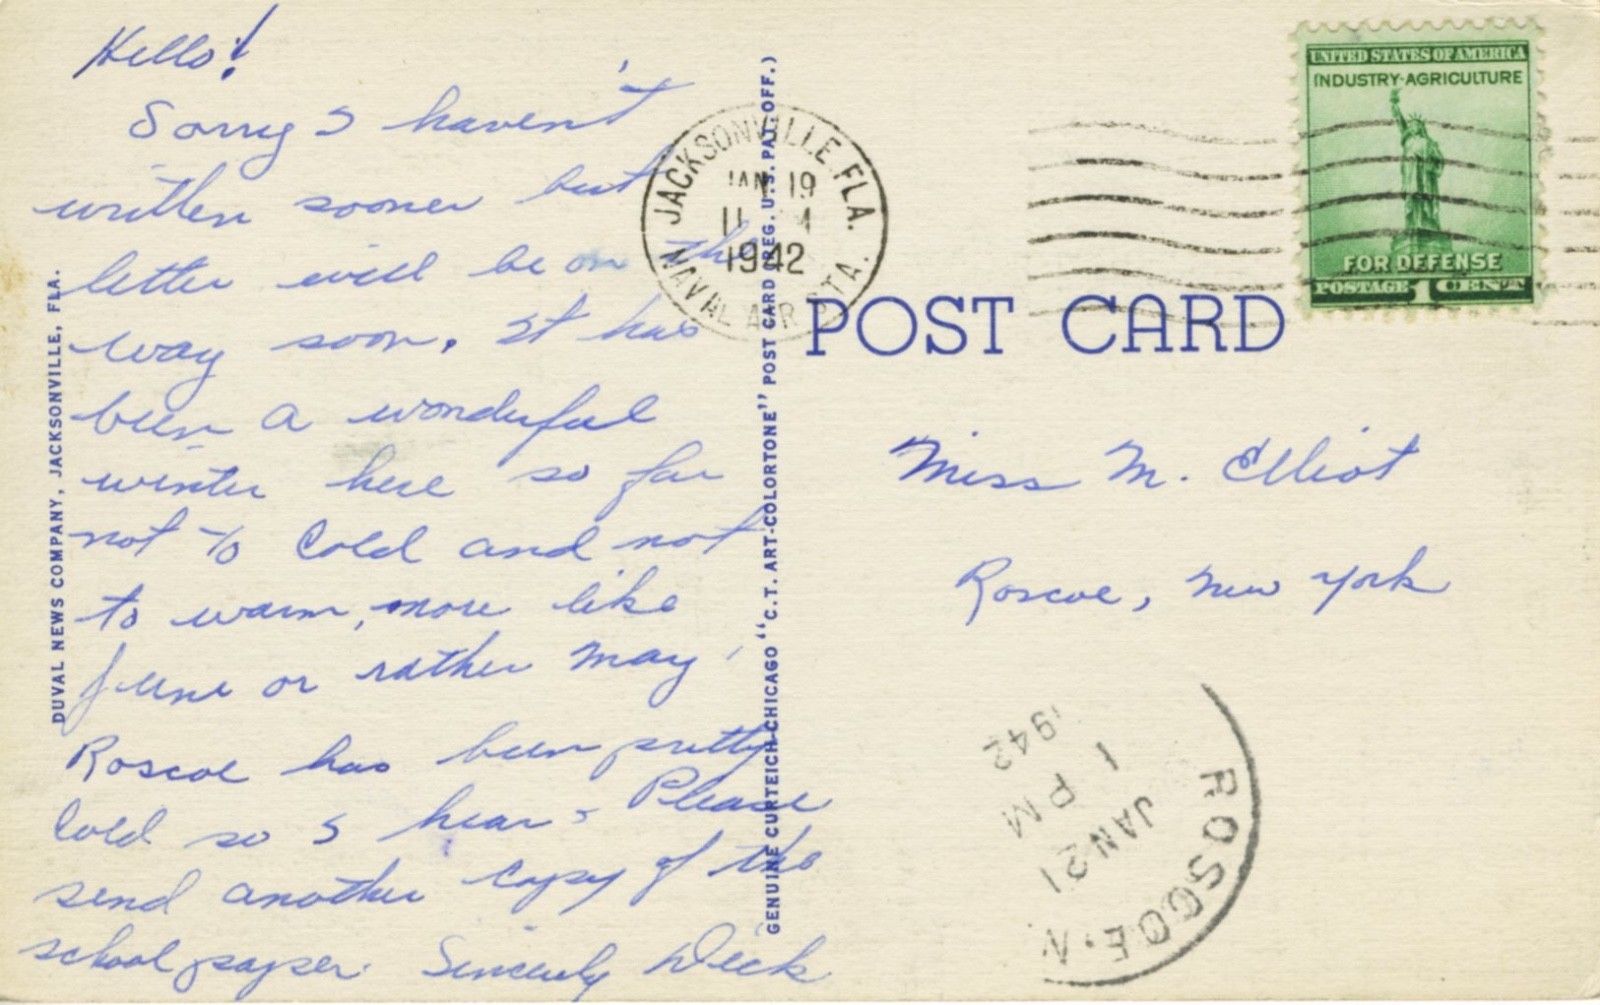 Hello!
Sorry I haven't
written sooner but
letter will be on the
way soon. It has
been a wonderful
winter here so far
not to cold and not
to warm, more like
June or rather May.
Roscoe has been pretty
cold so I hear. Please
send another copy of the
school paper. Sincerely Dick
DUVAL NEWS COMPANY, JACKSONVILLE, FLA.
GENUINE CURTEICH-CHICAGO "C.T. ART-COLORTONE" POST CARD (REG. U.S. PAT. OFF.)
JACKSONVILLE, FLA.
JAN 19
11 M
1942
NAVAL AIR STA.
UNITED STATES OF AMERICA
INDUSTRY-AGRICULTURE
FOR DEFENSE
POSTAGE 1 CENT
POST CARD
Miss M. Elliot
Roscoe, New York
ROSCOE, N.
JAN 21
1 PM
1942